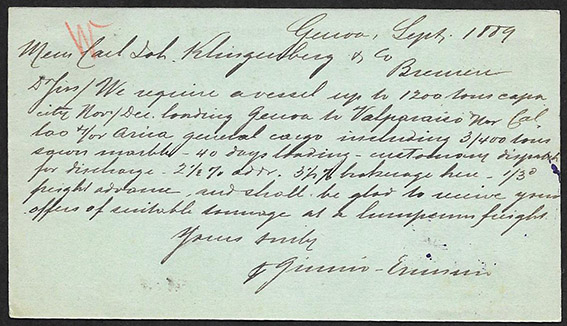 Genoa, Sept. 1889
Mess Carl Joh. Klingenberg & Co
Bremen
D Sirs/ We require a vessel up to 1200 tons capa
city Nov/Dec. loading Genoa to Valparaiso &/or Cal
lao &/or Arica general cargo including 3/400 tons
sawn marble - 40 days loading - customary dispatch
for discharge - 2½% addr. 3⅓% brokerage here - 1/3d
freight advance and shall be glad to receive your
offers of suitable tonnage at a lumpsum freight.
Yours truly